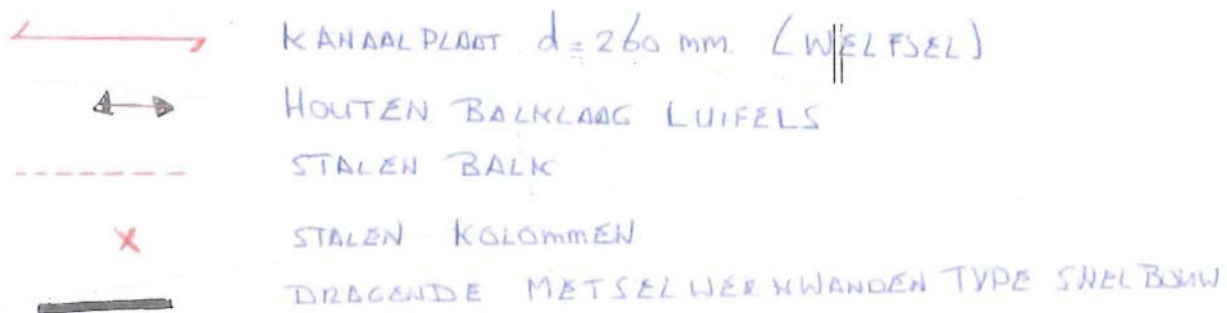 KANAALPLAAT d=260 mm. (WELFSEL)
HOUTEN BALKLAAG LUIFELS
STALEN BALK
STALEN KOLOMMEN
DRAGENDE METSELWERKWANDEN TYPE SNELBOUW